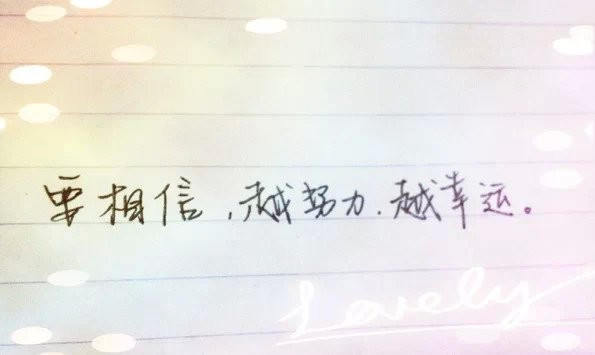 要相信，越努力，越幸运。
Lovely